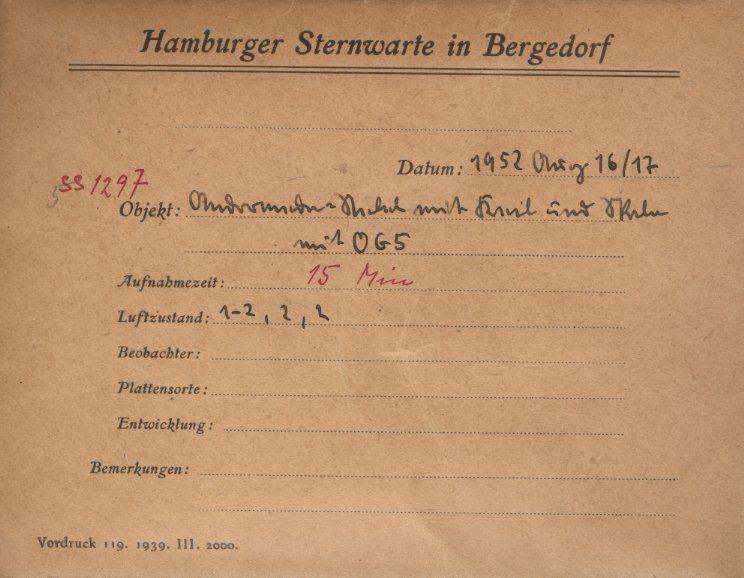 Hamburger Sternwarte in Bergedorf
Datum: 1952 Aug 16/17
SS 1297
Objekt: Andromeda-Nebel mit Keil und Skala
mit OG5
Aufnahmezeit: 15 Min
Luftzustand: 1-2, 2, 2
Beobachter:
Plattensorte:
Entwicklung:
Bemerkungen:
Vordruck 119. 1939. III. 2000.